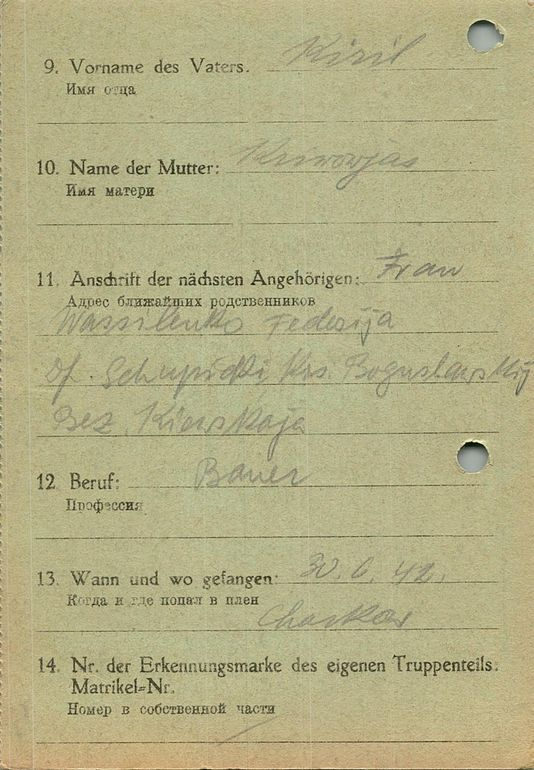 9. Vorname des Vaters. Kiril
Имя отца
10. Name der Mutter:
Имя матери
11. Anschrift der nächsten Angehörigen: Frau
Адрес ближайших родственников
Wassilenko Federija
Df. Krs. Boguslawskij
Bez. Kiewskaja
12. Beruf: Bauer
Профессия
13. Wann und wo gefangen: 30.6.42.
Когда и где попал в плен
Charkow
14. Nr. der Erkennungsmarke des eigenen Truppenteils.
Matrikel=Nr.
Номер в собственной части